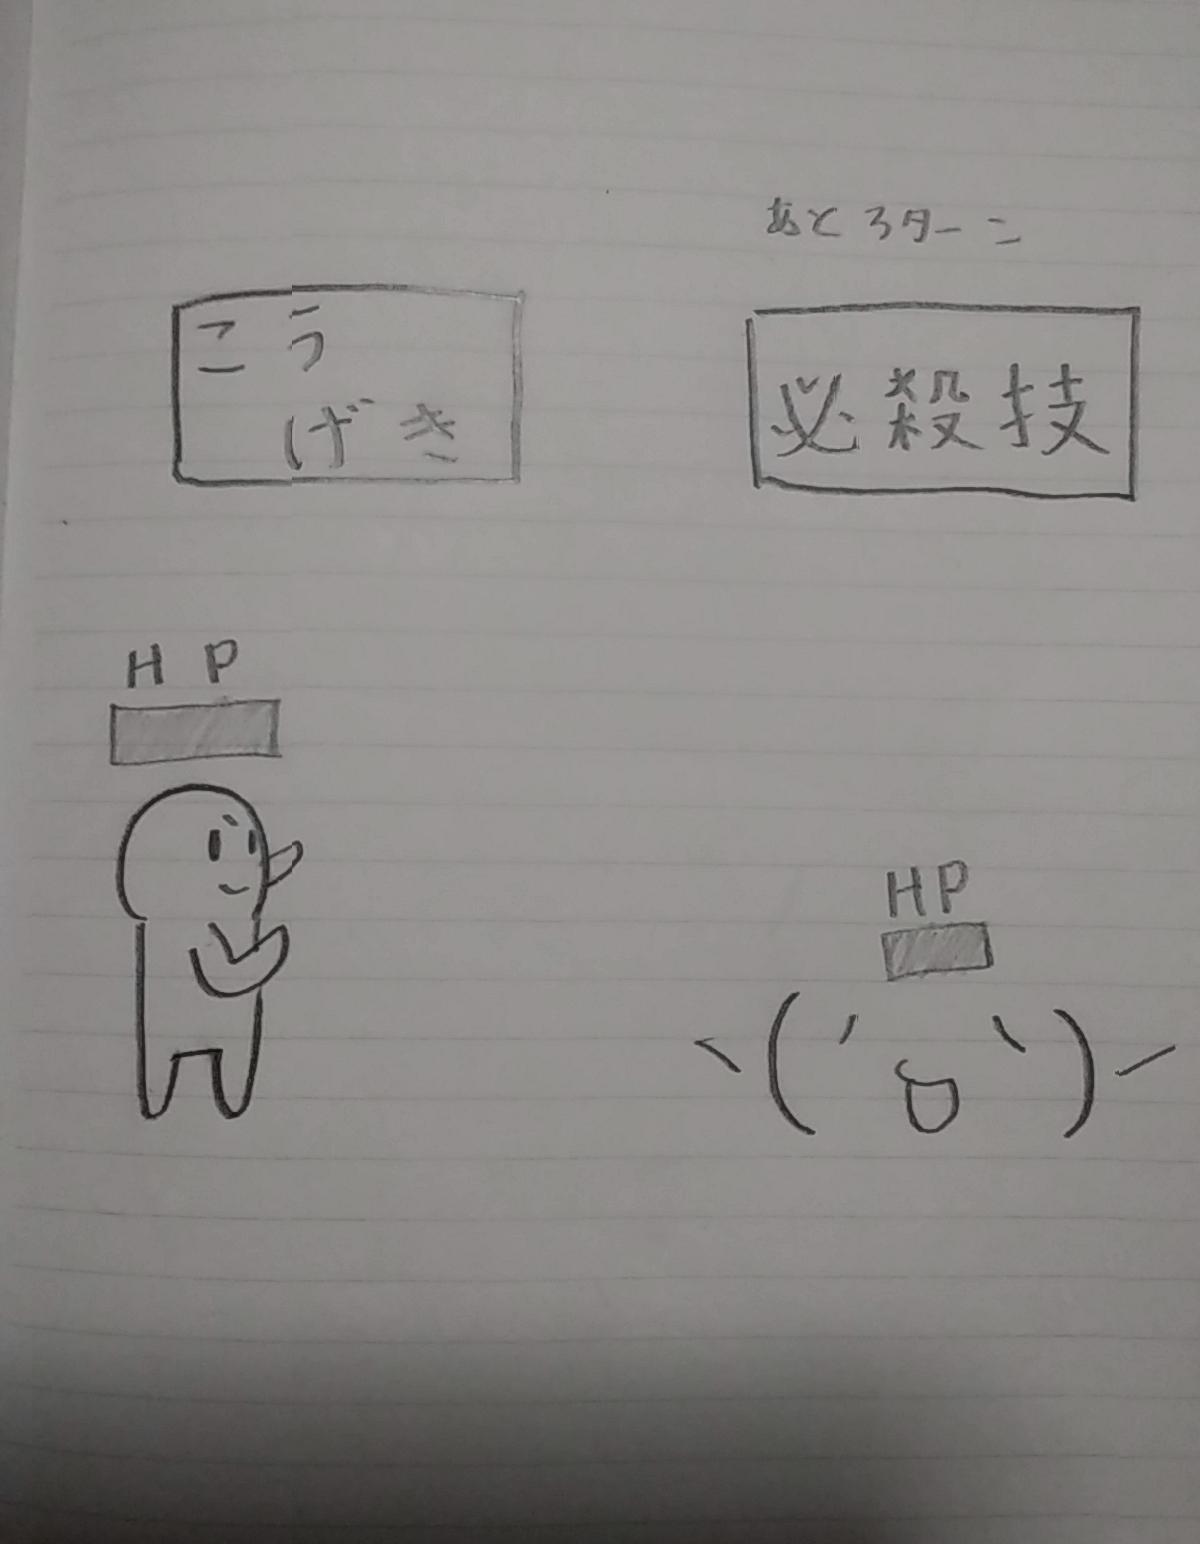 あと3ターン
こう
げき
必殺技
HP
HP
ヽ(´o`)ノ